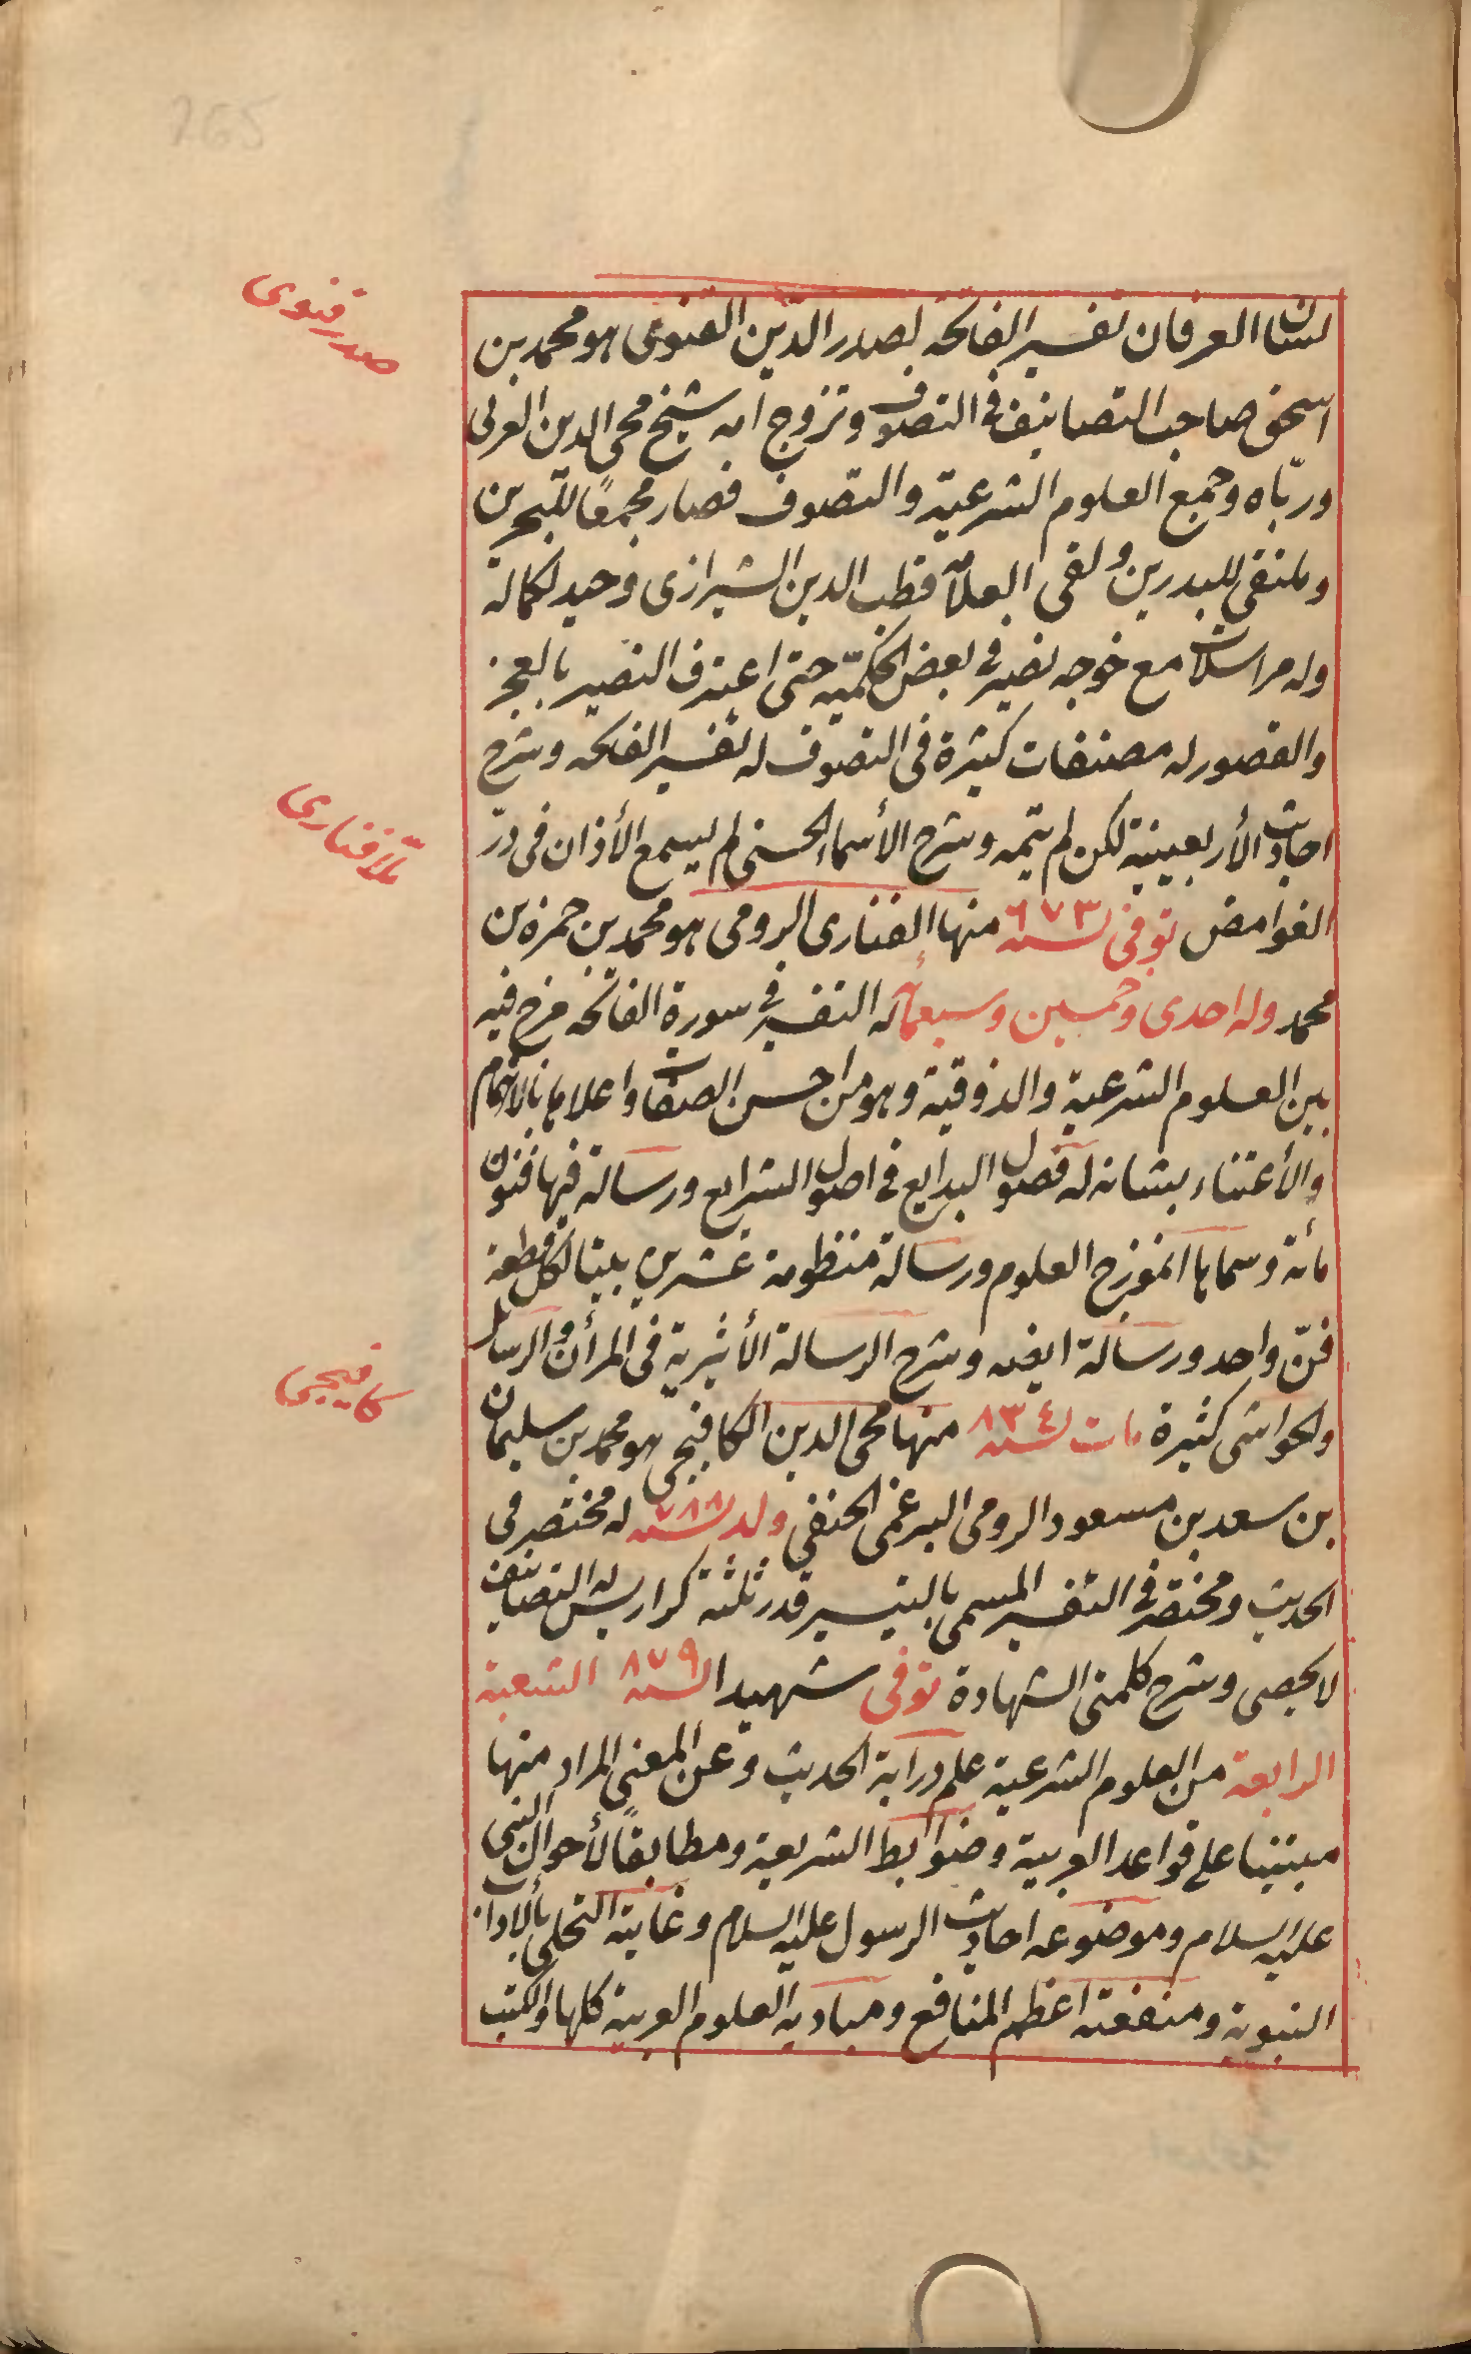 265
صدر قنوی
لسان العرفان تفسير الفاتحه لصدر الدين القنوى هو محمد بن
اسحق صاحب التصانيف فى التصوف وتزوج امه شيخ محى الدين العربى
وربّاه وجمع العلوم الشرعية والتصوف فصار مجمعًا للبحرين
وملتقى للبدرين ولقى العلامة قطب الدين الشيرازى وحيد لكماله
وله مراسلات مع خوجه نصير فى بعض الحكميّه حتى اعترف النصير بالعجز
والقصور له مصنفات كثيرة فى التصوف له تفسير الفاتحه وشرح
احاديث الأربعينية لكن لم يتمه وشرح الأسماء الحسنى لم يسمع الأذان فى درّ
ملّا فنارى
الغوامض توفى سنه ٦٧٣ منها الفنارى الرومى هو محمد بن حمزه بن
محمد وله احدى وخمسين وسبعمائه له التفسير فى سورة الفاتحه مزج فيه
بين العلوم الشرعية والذوقية وهو من احسن الصفات واعلاها بالاهتمام
والأعتناء بشانه له فصول البدايع فى اصول الشرايع ورسالة فيها فنون
مائة وسماها انموزج العلوم ورسالة منظومة عشرين بيتا لكل قطعه
فنّ واحد ورسالة ايضه وشرح الرسالة الأثيرية فى المرأن والرسائل
كافيجى
والحواشى كثيرة مات سنه ٨٣٤ منها محى الدين الكافيجى هو محمد بن سليمان
بن سعد بن مسعود الرومى البرغمى الحنفى ولد سنه ٧٨٨ له مختصر فى
الحديث ومختصر فى التفسير المسمى بالتيسير قدر ثلثة كراريس له التصانيف
لا يحصى وشرح كلمتى الشهادة توفى شهيدا سنه ٨٧٩ الشعبة
الرابعة من العلوم الشرعية علم دراية الحديث وعن المعنى المراد منها
مبتنيا على قواعد العربية وضوابط الشريعة ومطابقًا لأحوال النبى
عليه السلام وموضوعه احاديث الرسول عليه السلام وغايته التحلى بالاداب
النبوية ومنفعته اعظم المنافع ومباديه العلوم العربية كلها والكتب